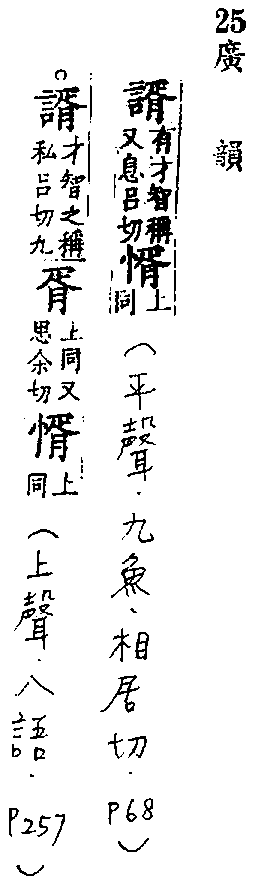 25廣韻
諝有才智稱又息吕切㥠上同(平聲.九魚.相居切.P68)
。諝才智之稱私吕切九胥上同又思余切㥠上同(上聲.八語.P257)